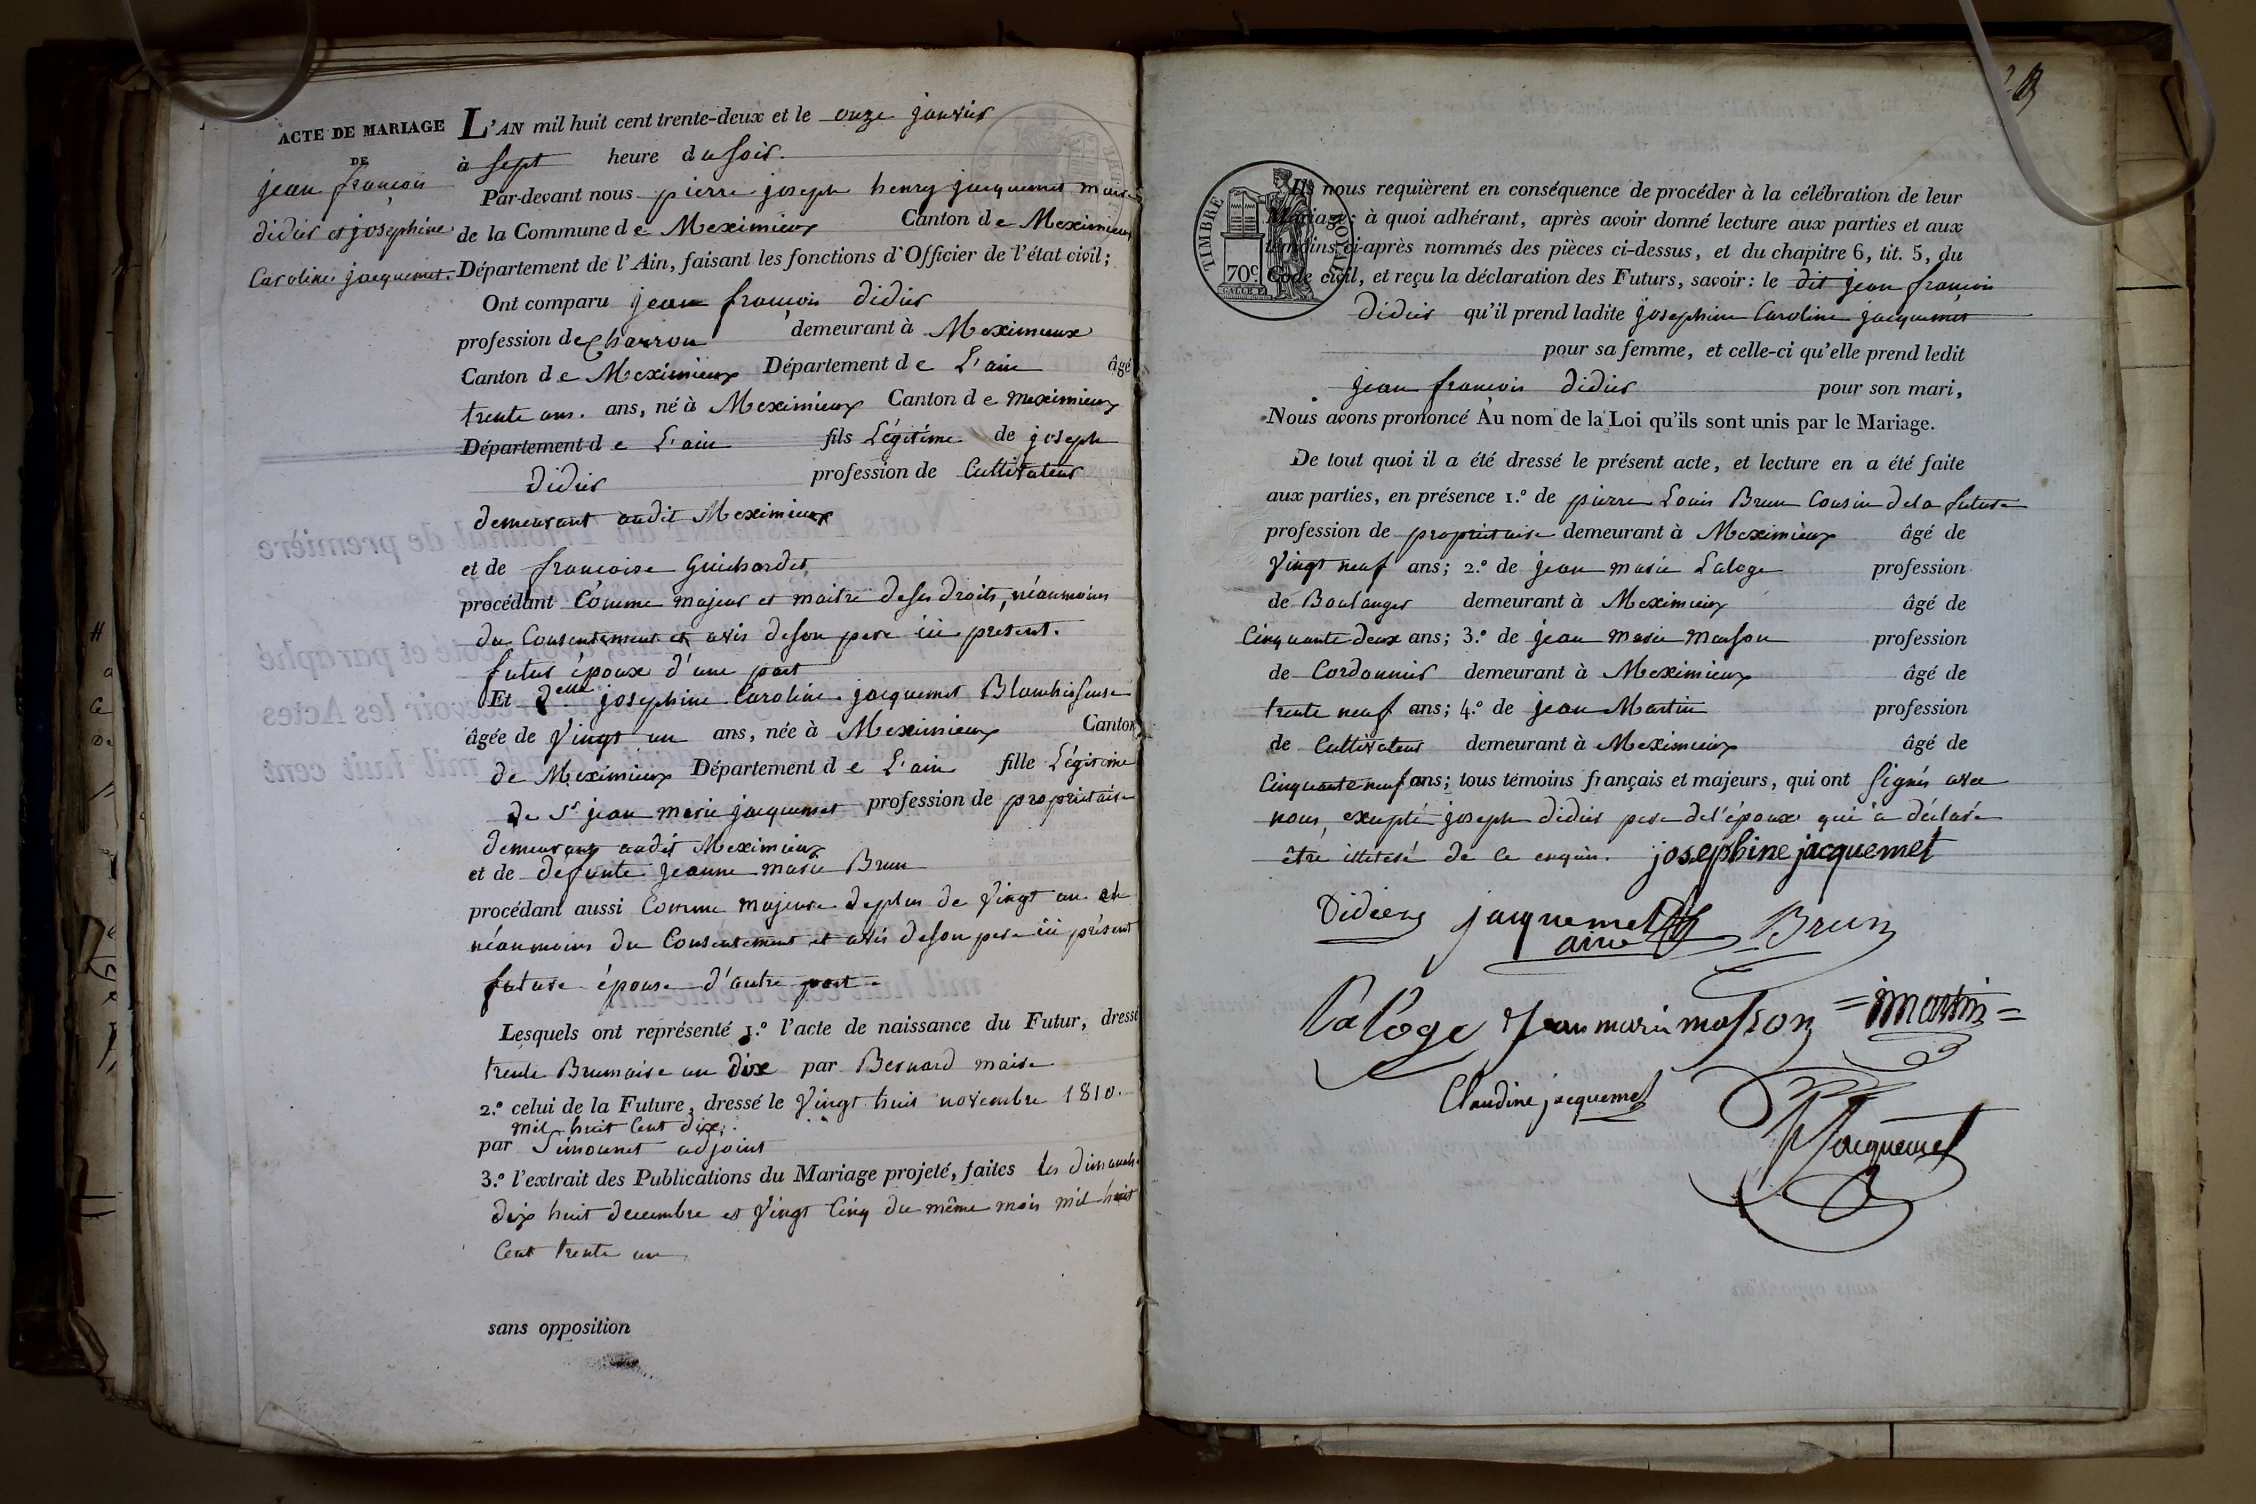 ACTE DE MARIAGE
DE
jean françois
didier et josephine
Caroline jacquemet.
L'AN mil huit cent trente-deux et le onze janvier
à sept heure du soir.
Par-devant nous pierre joseph henry jacquemet maire
de la Commune de Meximieux Canton de Meximieux
Département de l'Ain, faisant les fonctions d'Officier de l'état civil;
Ont comparu jean françois didier
profession de Charron demeurant à Meximieux
Canton de Meximieux Département de L'ain âgé
trente ans. ans, né à Meximieux Canton de meximieux
Département de L'ain fils Légitime de joseph
didier profession de Cultivateur
demeurant audit Meximieux
et de françoise Guichardet
procédant Comme majeur et maitre de ses droits, néanmoins
du Consentement et avis de son pere ici present.
futur époux d'une part
Et delle josephine Caroline jacquemet Blanchisseuse
âgée de Vingt un ans, née à Meximieux Canton
de Meximieux Département de L'ain fille Légitime
de Sr jean marie jacquemet profession de propriétaire
demeurant audit Meximieux
et de defunte jeanne marie Brun
procédant aussi Comme majeure de plus de Vingt un an
néanmoins du Consentement et avis de son pere ici présent
future épouse d'autre part
Lesquels ont représenté 1.º l'acte de naissance du Futur, dressé
trente Brumaire an dix par Bernard maire
2.º celui de la Future, dressé le Vingt huit novembre 1810.
mil huit Cent dix.
par Simonet adjoint
3.º l'extrait des Publications du Mariage projeté, faites les dimanche
dix huit decembre et Vingt Cinq du même mois mil huit
Cent trente un
sans opposition
TIMBRE ROYAL
70c
Ils nous requièrent en conséquence de procéder à la célébration de leur
Mariage: à quoi adhérant, après avoir donné lecture aux parties et aux
témoins ci-après nommés des pièces ci-dessus, et du chapitre 6, tit. 5, du
Code civil, et reçu la déclaration des Futurs, savoir: le dit jean françois
Didier qu'il prend ladite josephine Caroline jacquemet
pour sa femme, et celle-ci qu'elle prend ledit
jean françois didier pour son mari,
Nous avons prononcé Au nom de la Loi qu'ils sont unis par le Mariage.
De tout quoi il a été dressé le présent acte, et lecture en a été faite
aux parties, en présence 1.º de pierre Louis Brun Cousin de la future
profession de proprietaire demeurant à Meximieux âgé de
Vingt neuf ans; 2.º de jean marie Laloge profession
de Boulanger demeurant à Meximieux âgé de
Cinquante deux ans; 3.º de jean marie masson profession
de Cordonnier demeurant à Meximieux âgé de
trente neuf ans; 4.º de jean Martin profession
de Cultivateur demeurant à Meximieux âgé de
Cinquante neuf ans; tous témoins français et majeurs, qui ont signés avec
nous, excepté joseph didier pere de l'époux qui a déclaré
être illiteré de ce enquis. josephine jacquemet
Didier jacquemet Brun
ainé
Laloge Jean marie masson = martin =
Claudine jacquemet
Jacquemet